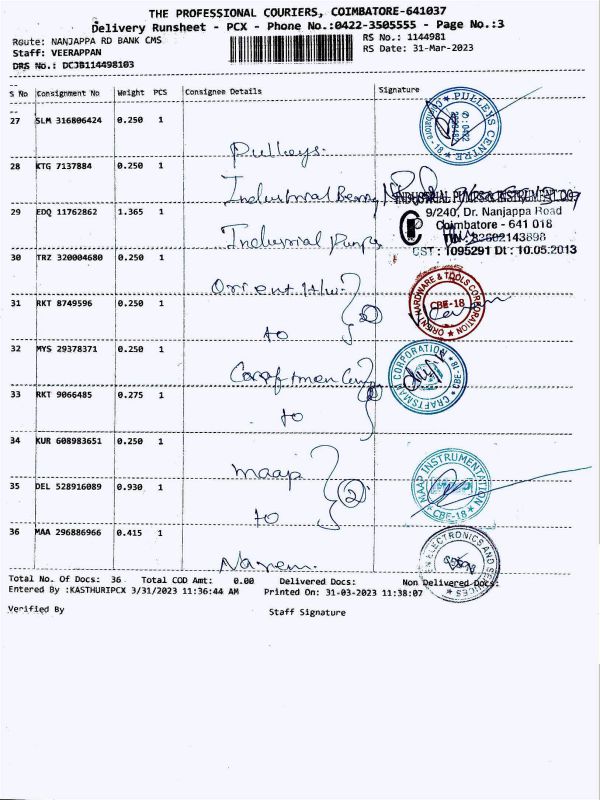 THE PROFESSIONAL COURIERS, COIMBATORE-641037
Delivery Runsheet - PCX - Phone No.:0422-3505555 - Page No.:3
Route: NANJAPPA RD BANK CMS RS No.: 1144981
Staff: VEERAPPAN RS Date: 31-Mar-2023
DRS No.: DCJB114498103
S No Consignment No Weight PCS Consignee Details Signature
27 SLM 316806424 0.250 1
PULLEYS CENTRE
Coimbatore - 18
Pulleys.
28 KTG 7137884 0.250 1
Industrial
INDUSTRIAL PUMPS & INSTRUMENT CO
9/240, Dr. Nanjappa Road
29 EDQ 11762862 1.365 1
Coimbatore - 641 018
Industrial Pumps
CST : 1095291 Dt : 10.05.2013
30 TRZ 320004680 0.250 1
Orient H/w.
ORIENT HARDWARE & TOOLS CORPORATION
CBE-18
31 RKT 8749596 0.250 1
2
to
32 MYS 29378371 0.250 1
CRAFTSMAN CORPORATION
CBE-18
33 RKT 9066485 0.275 1
2
to
34 KUR 608983651 0.250 1
maap
MAAP INSTRUMENTATION
CBE-18
35 DEL 528916089 0.930 1
2
to
36 MAA 296886966 0.415 1
ELECTRONICS AND SERVICES
Total No. Of Docs: 36 Total COD Amt: 0.00 Delivered Docs: Non Delivered Docs:
Entered By :KASTHURIPCX 3/31/2023 11:36:44 AM Printed On: 31-03-2023 11:38:07
Verified By Staff Signature